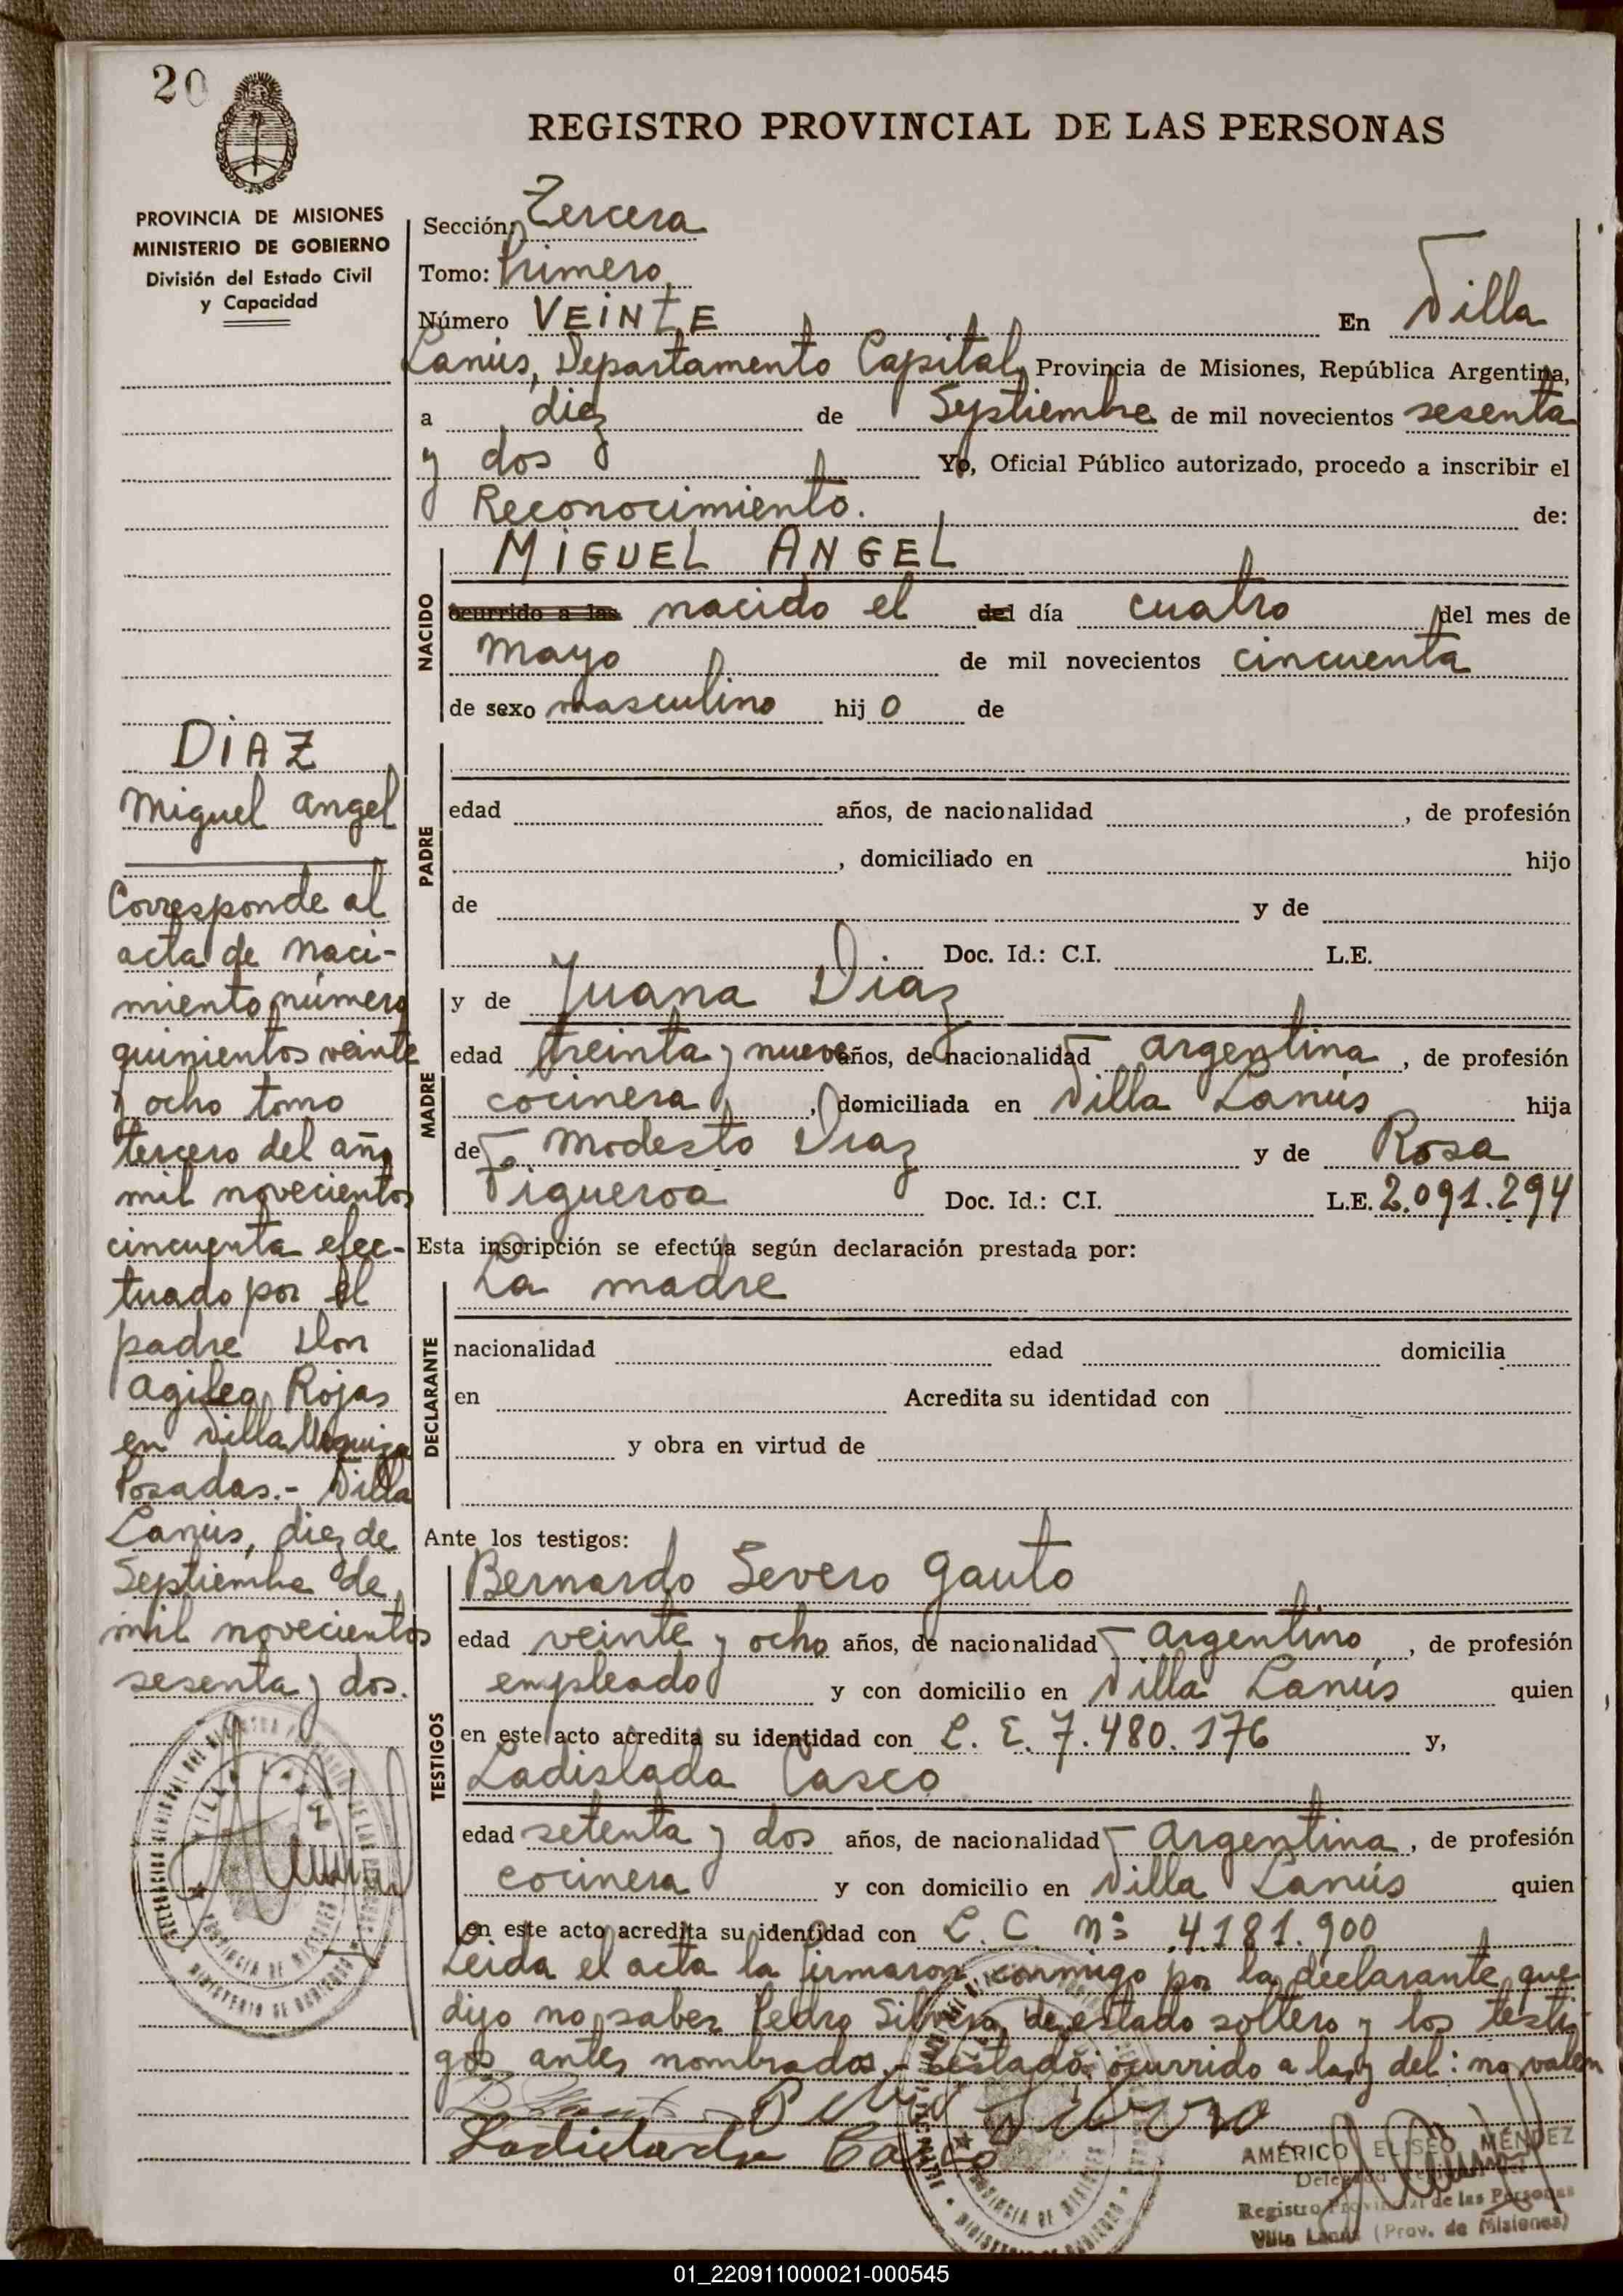 20
REGISTRO PROVINCIAL DE LAS PERSONAS
PROVINCIA DE MISIONES
MINISTERIO DE GOBIERNO
División del Estado Civil
y Capacidad
Sección: Tercera
Tomo: Primero
Número VEINTE En Villa
Lanús, Departamento Capital, Provincia de Misiones, República Argentina,
a diez de Septiembre de mil novecientos sesenta
y dos Yo, Oficial Público autorizado, procedo a inscribir el
Reconocimiento. de:
NACIDO
MIGUEL ANGEL
ocurrido a las nacido el del día cuatro del mes de
Mayo de mil novecientos cincuenta
de sexo masculino hij o de
PADRE
edad años, de nacionalidad , de profesión
, domiciliado en hijo
de y de
Doc. Id.: C.I. L.E.
MADRE
y de Juana Diaz
edad treinta y nueve años, de nacionalidad argentina , de profesión
cocinera , domiciliada en Villa Lanús hija
de Modesto Diaz y de Rosa
Figueroa Doc. Id.: C.I. L.E. 2.091.294
Esta inscripción se efectúa según declaración prestada por:
DECLARANTE
La madre
nacionalidad edad domicilia
en Acredita su identidad con
y obra en virtud de
Ante los testigos:
TESTIGOS
Bernardo Severo Gauto
edad veinte y ocho años, de nacionalidad argentino , de profesión
empleado y con domicilio en Villa Lanús quien
en este acto acredita su identidad con L. E. 7.480.176 y,
Ladislada Casco
edad setenta y dos años, de nacionalidad argentina , de profesión
cocinera y con domicilio en Villa Lanús quien
en este acto acredita su identidad con L. C. Nº 4.181.900
Leida el acta la firmaron conmigo por la declarante que
dijo no saber Pedro Silvera de estado soltero y los testi-
gos antes nombrados.- Testado: ocurrido a las y del: no valen
Ladislada Casco
AMÉRICO ELISEO MÉNDEZ
Registro Provincial de las Personas
Villa Lanús (Prov. de Misiones)
DIAZ
Miguel Angel
Corresponde al
acta de Naci-
miento número
quinientos veinte
y ocho tomo
tercero del año
mil novecientos
cincuenta efec-
tuado por el
padre Don
Rojas
en Villa Urquiza
Posadas.- Villa
Lanús, diez de
Septiembre de
mil novecientos
sesenta y dos.
PROVINCIA DE MISIONES
MINISTERIO DE GOBIERNO
01_220911000021-000545